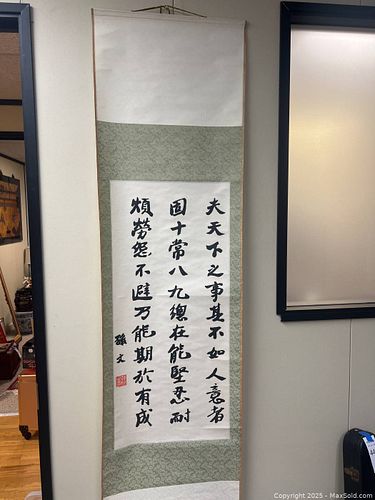 夫天下之事其不如人意者
固十常八九總在能堅忍耐
煩勞怨不避乃能期於有成
孫文
Copyright 2025 - MaxSold.com